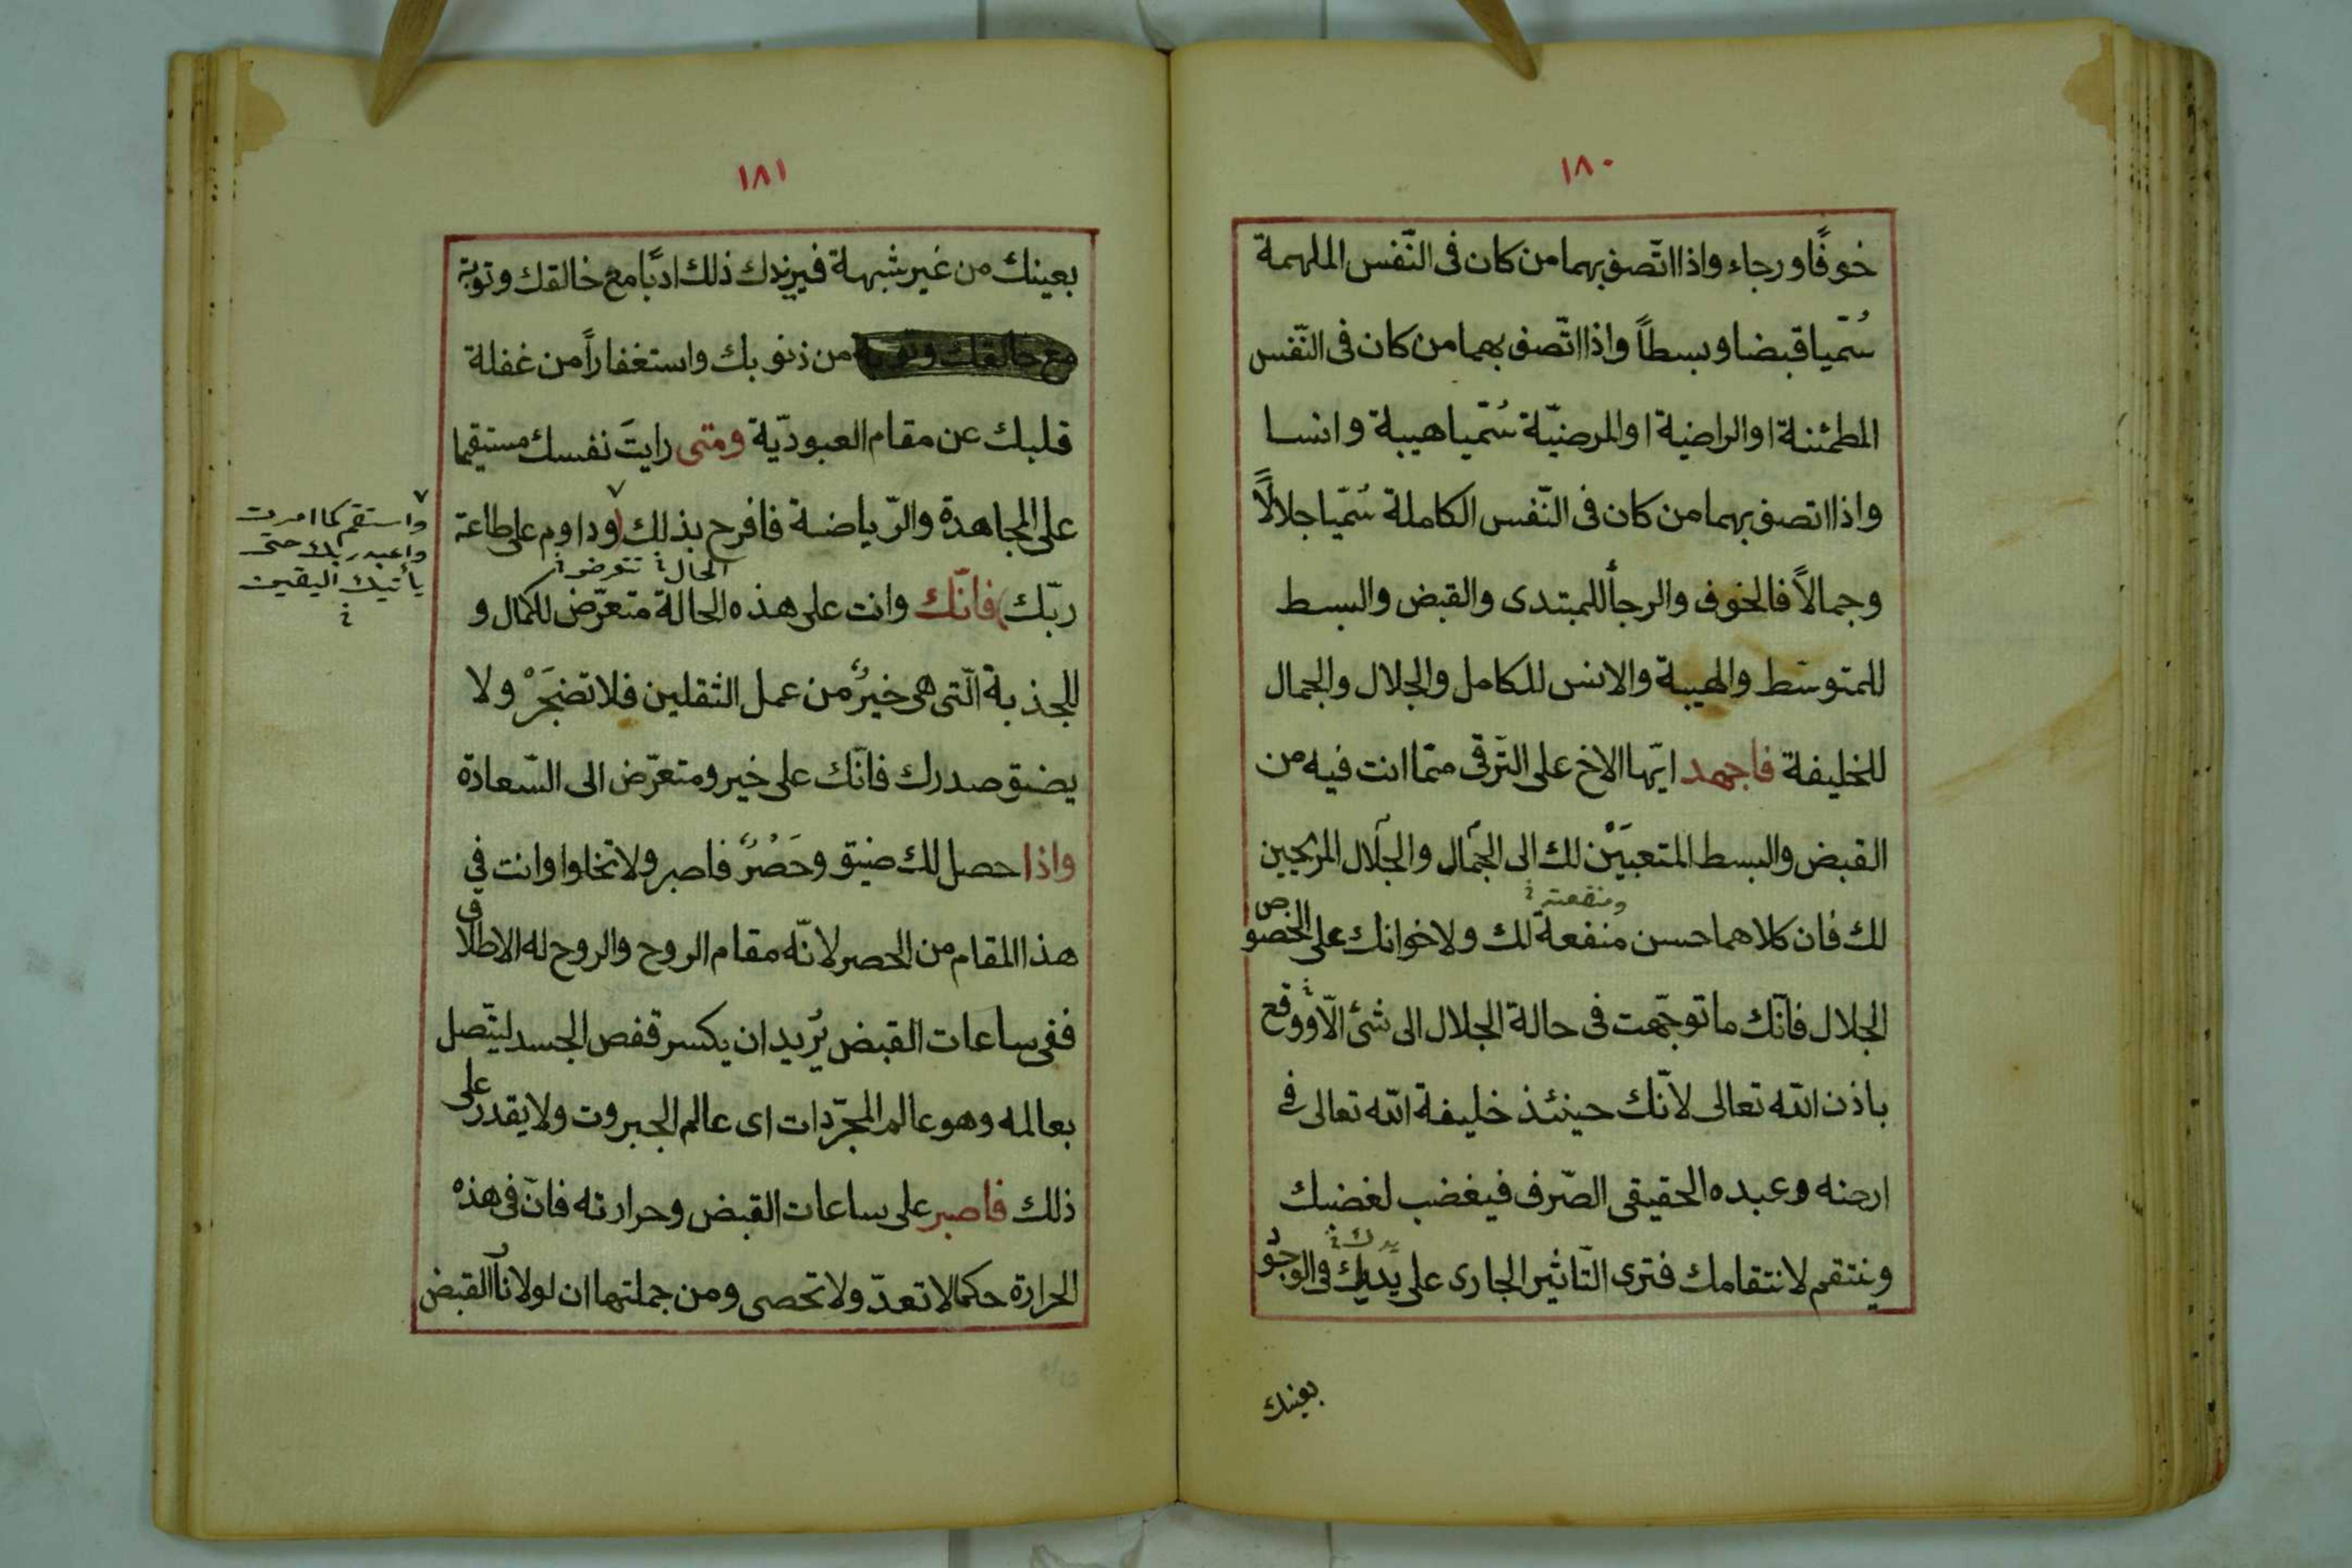 ١٨٠
خوفًا ورجاء واذا اتّصف بهما من كان فى النّفس الملهمة
سُمّيا قبضا وبسطاً واذا اتّصف بهما من كان فى النّفس
المطمئنة او الراضية او المرضيّة سُمّيا هيبة وانسا
واذا اتصف بهما من كان فى النّفس الكاملة سُمّيا جلالاً
وجمالاً فالخوف والرجأ للمبتدى والقبض والبسط
للمتوسّط والهيبة والانس للكامل والجلال والجمال
للخليفة فاجهد ايّها الاخ على التّرقى ممّا انت فيه من
القبض والبسط المتعبَيْن لك الى الجمال والجلال المريحين
ومنفعته
لك فان كلاهما حسن منفعة لك ولاخوانك على الخصوص
الجلال فانّك ما توجّهت فى حالة الجلال الى شئ الّا ووقع
باذن الله تعالى لانّك حينئذ خليفة الله تعالى فى
ارضه وعبده الحقيقى الصّرف فيغضب لغضبك
يدك
وينتقم لانتقامك فترى التّاثير الجارى على يديك فى الوجود
بعينك
١٨١
بعينك من غير شبهة فيزيدك ذلك ادبًا مع خالقك وتوبة
مع خالقك وتوبة من ذنوبك واستغفاراً من غفلة
قلبك عن مقام العبوديّة ومتى رايتَ نفسك مستقيما
على المجاهدة والرّياضة فافرح بذلك (وداوم على طاعة
الحال تتعرض
ربّك) فانّك وانت على هذه الحالة متعرّض للكمال و
للجذبة الّتى هى خيرٌ من عمل الثقلين فلا تضجَرْ ولا
يضيق صدرك فانّك على خير ومتعرّض الى السّعادة
واذا حصل لك ضيق وحَصْرٌ فاصبر ولا تخلوا وانت في
هذا المقام من الحصر لانّه مقام الروح والروح له الاطلاق
ففى ساعات القبض تُريد ان يكسر قفص الجسد ليتّصل
بعالمه وهو عالم المجرّدات اى عالم الجبروت ولا يقدر على
ذلك فاصبر على ساعات القبض وحرارته فانّ فى هذه
الحرارة حكما لا تعدّ ولا تحصى ومن جملتها ان لولا نار القبض
واستقم كما امرت
واعبد ربك حتى
يأتيك اليقين